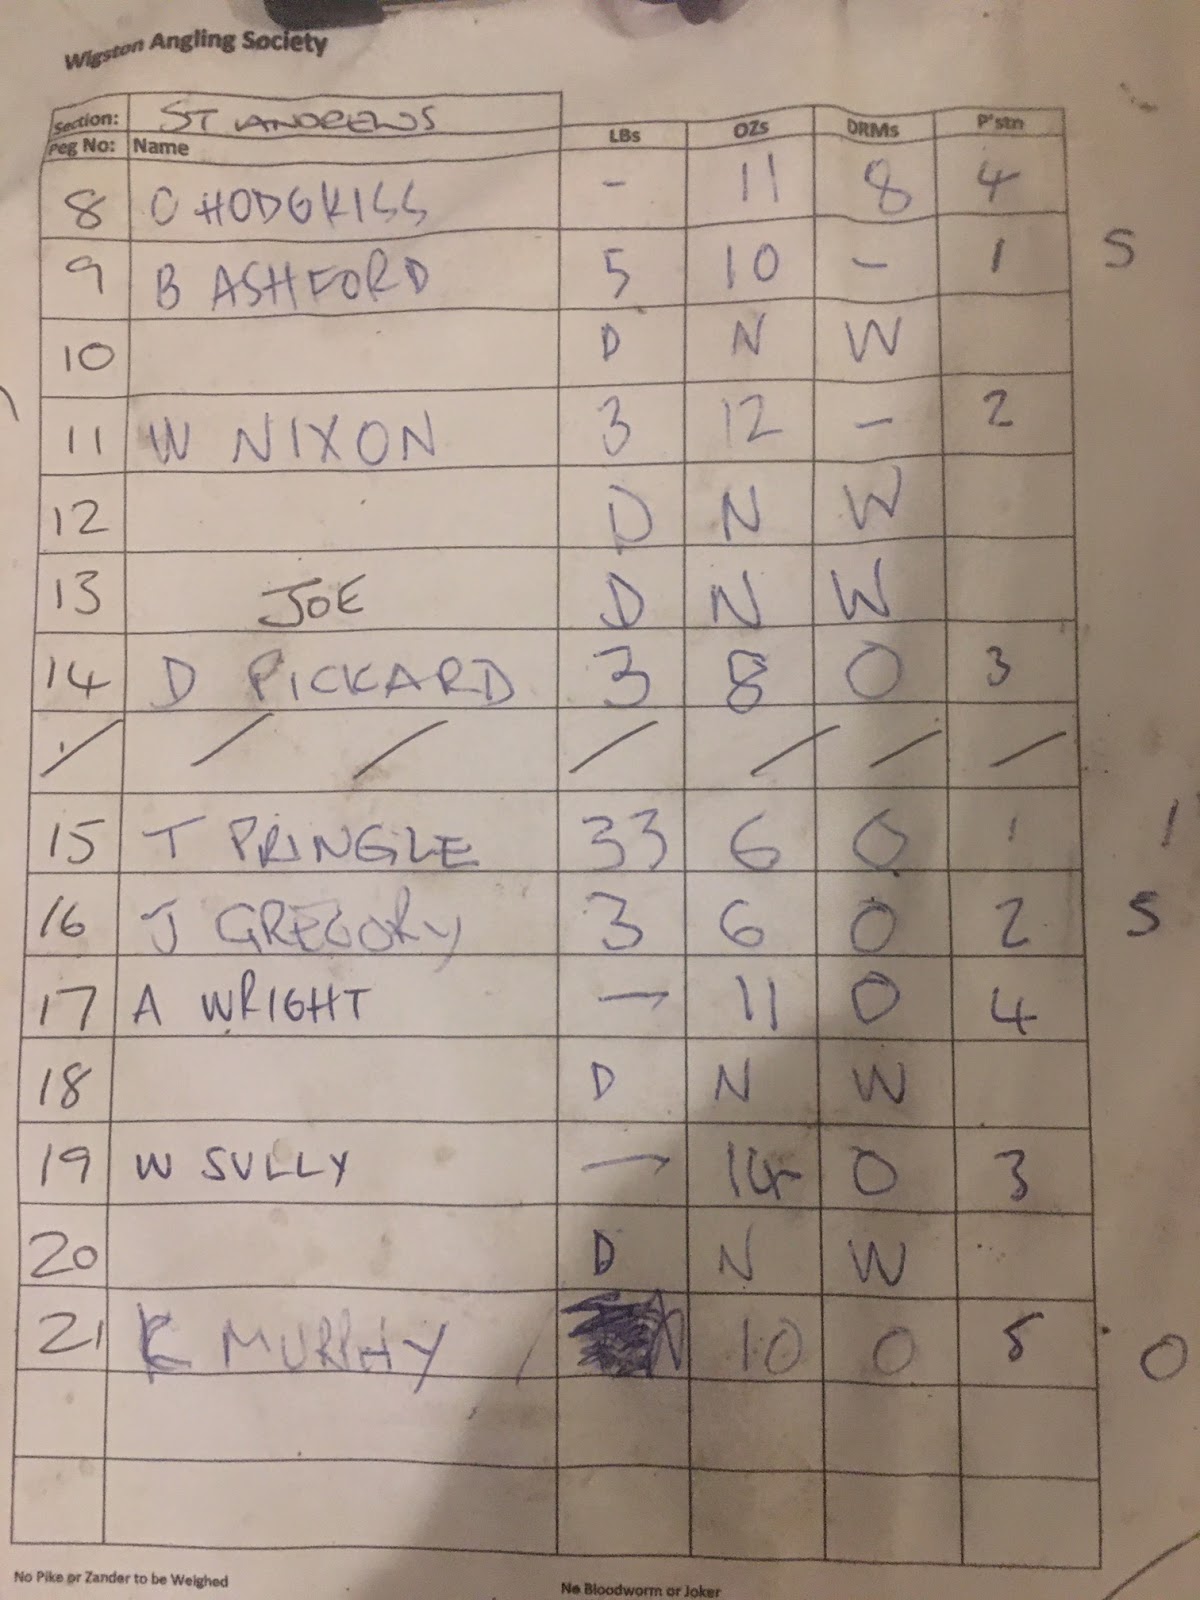 Wigston Angling Society
Section: ST ANDREWS LBs OZs DRMs P'stn
Peg No: Name
8 C HODGKISS - 11 8 4
9 B ASHFORD 5 10 - 1 5
10 D N W
11 W NIXON 3 12 - 2
12 D N W
13 JOE D N W
14 D PICKARD 3 8 0 3
/ / / / / / /
15 T PRINGLE 33 6 0 1 1
16 J GREGORY 3 6 0 2 5
17 A WRIGHT - 11 0 4
18 D N W
19 W SULLY - 14 0 3
20 D N W
21 K MURPHY 10 0 5 0
No Pike or Zander to be Weighed
No Bloodworm or Joker